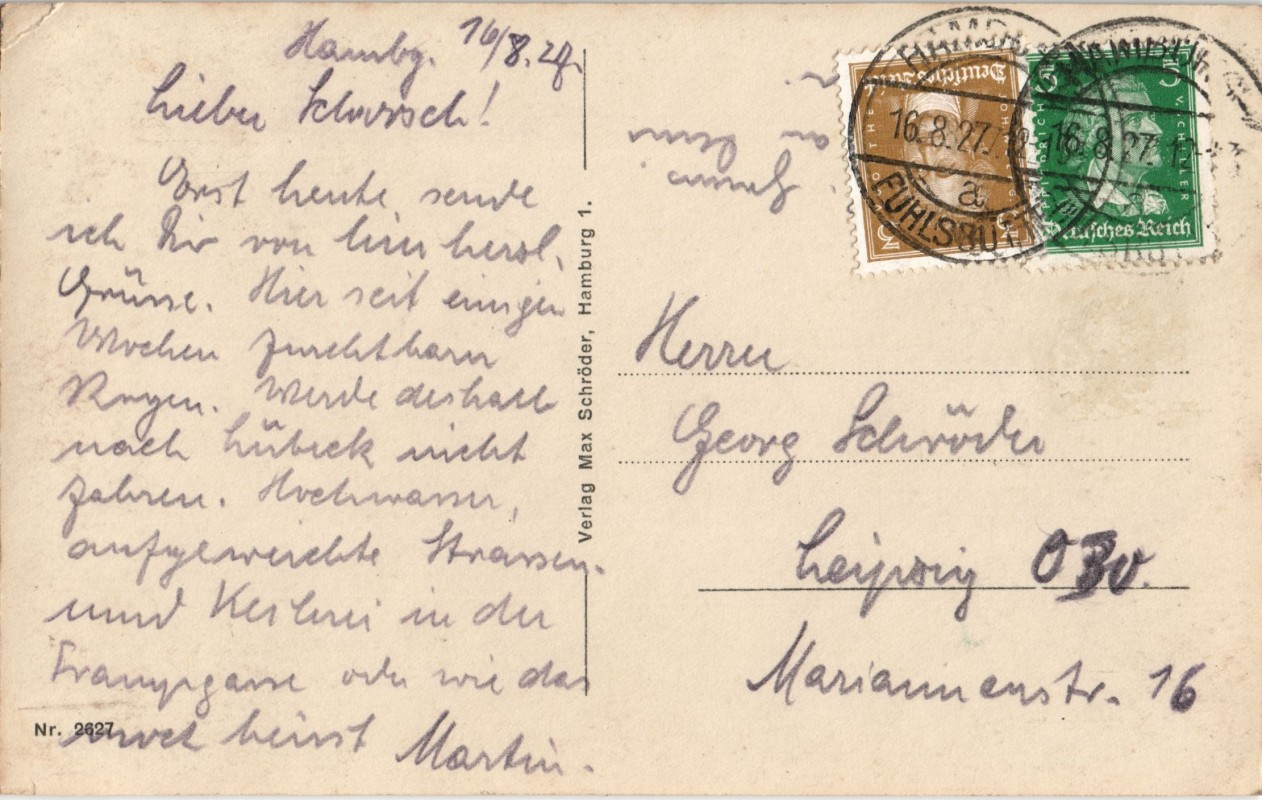 Hambg. 16/8.27.
Lieber Schorsch!
Erst heute sende
ich Dir von hier herzl.
Grüsse. Hier seit einigen
Wochen furchtbarer
Regen. Werde deshalb
nach Lübeck nicht
fahren. Hochwasser,
aufgeweichte Strassen
und Keilerei in der
oder wie das
heisst Martin.
Nr. 2627
Verlag Max Schröder, Hamburg 1.
an
HAMBURG
16.8.27.
a
FUHLSBÜTTEL
HAMBURG
16.8.27.
Deutsches Reich
3
Deutsches Reich
5
FRIEDRICH V SCHILLER
Herrn
Georg Schröder
Leipzig O
Mariannenstr. 16